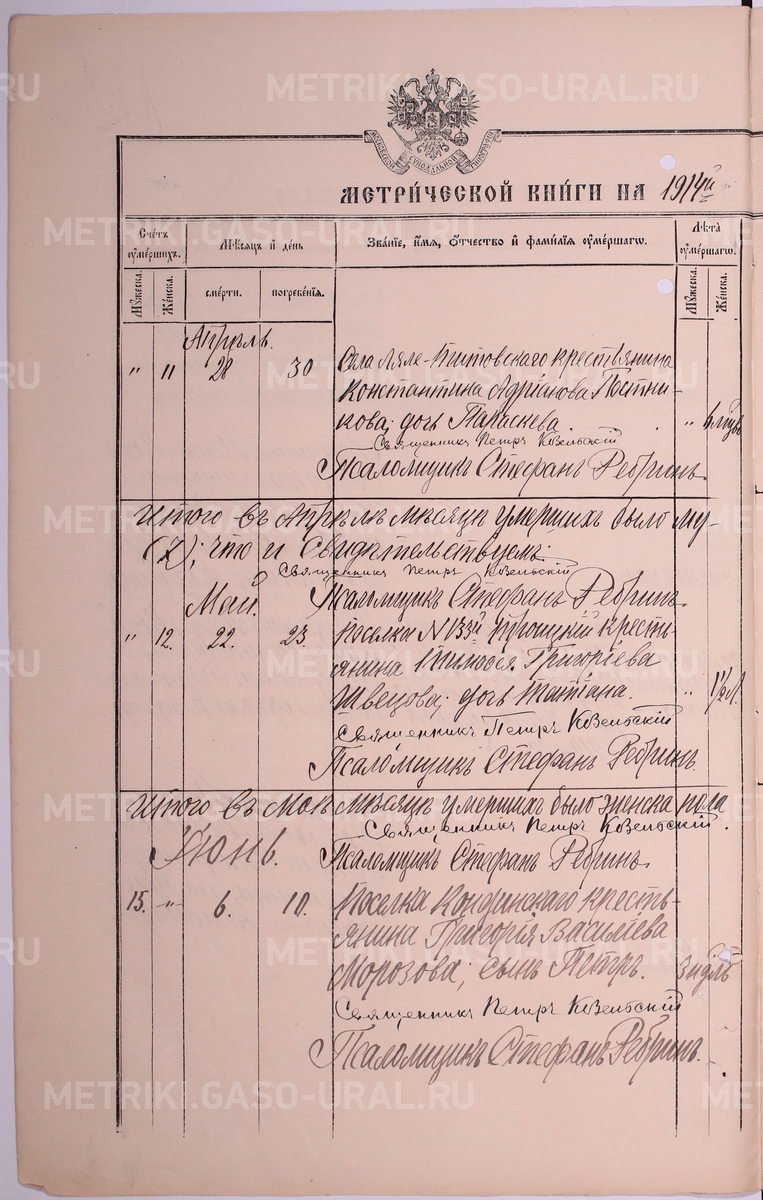 МЕТРИ́ЧЕСКОЙ КНИ́ГИ НА 1914й
Сче́тъ ᲂуме́ршихъ.
Мѣ́сяцъ и де́нь
Зва́нїе, и́мя, ѻ́тчество и фами́лїя ᲂуме́ршагѡ.
Лѣ́та ᲂуме́ршагѡ.
Му́жеска.
Же́нска.
сме́рти.
погребе́нїя.
Му́жеска.
Же́нска.
Апрѣль.
" 11 28 30 Села Ляле-Титовскаго крестьянина
Константина Адріанова Постни-
кова; дочь Параскева. "
Священникъ Петръ Козельскій
Псаломщикъ Стефанъ Ребринъ.
Итого въ Апрѣлѣ мѣсяцѣ умершихъ было му-
что и свидѣтельствуемъ:
Священникъ Петръ Козельскій
Май. Псаломщикъ Стефанъ Ребринъ.
" 12. 22. 23. Поселка N 133й Троицкій кресть-
янина Тимоѳея Григоріева
Швецова; дочь Татіана. " 1½ л.
Священникъ Петръ Козельскій
Псаломщикъ Стефанъ Ребринъ.
Итого въ Маѣ мѣсяцѣ умершихъ было женска пола
Священникъ Петръ Козельскій.
Іюнь. Псаломщикъ Стефанъ Ребринъ.
15. " 6. 10. Поселка Кондинскаго кресть-
янина Григорія Василіева
Морозова; сынъ Петръ. 3 ндѣл.
Священникъ Петръ Козельскій
Псаломщикъ Стефанъ Ребринъ.
METRIKI.GASO-URAL.RU